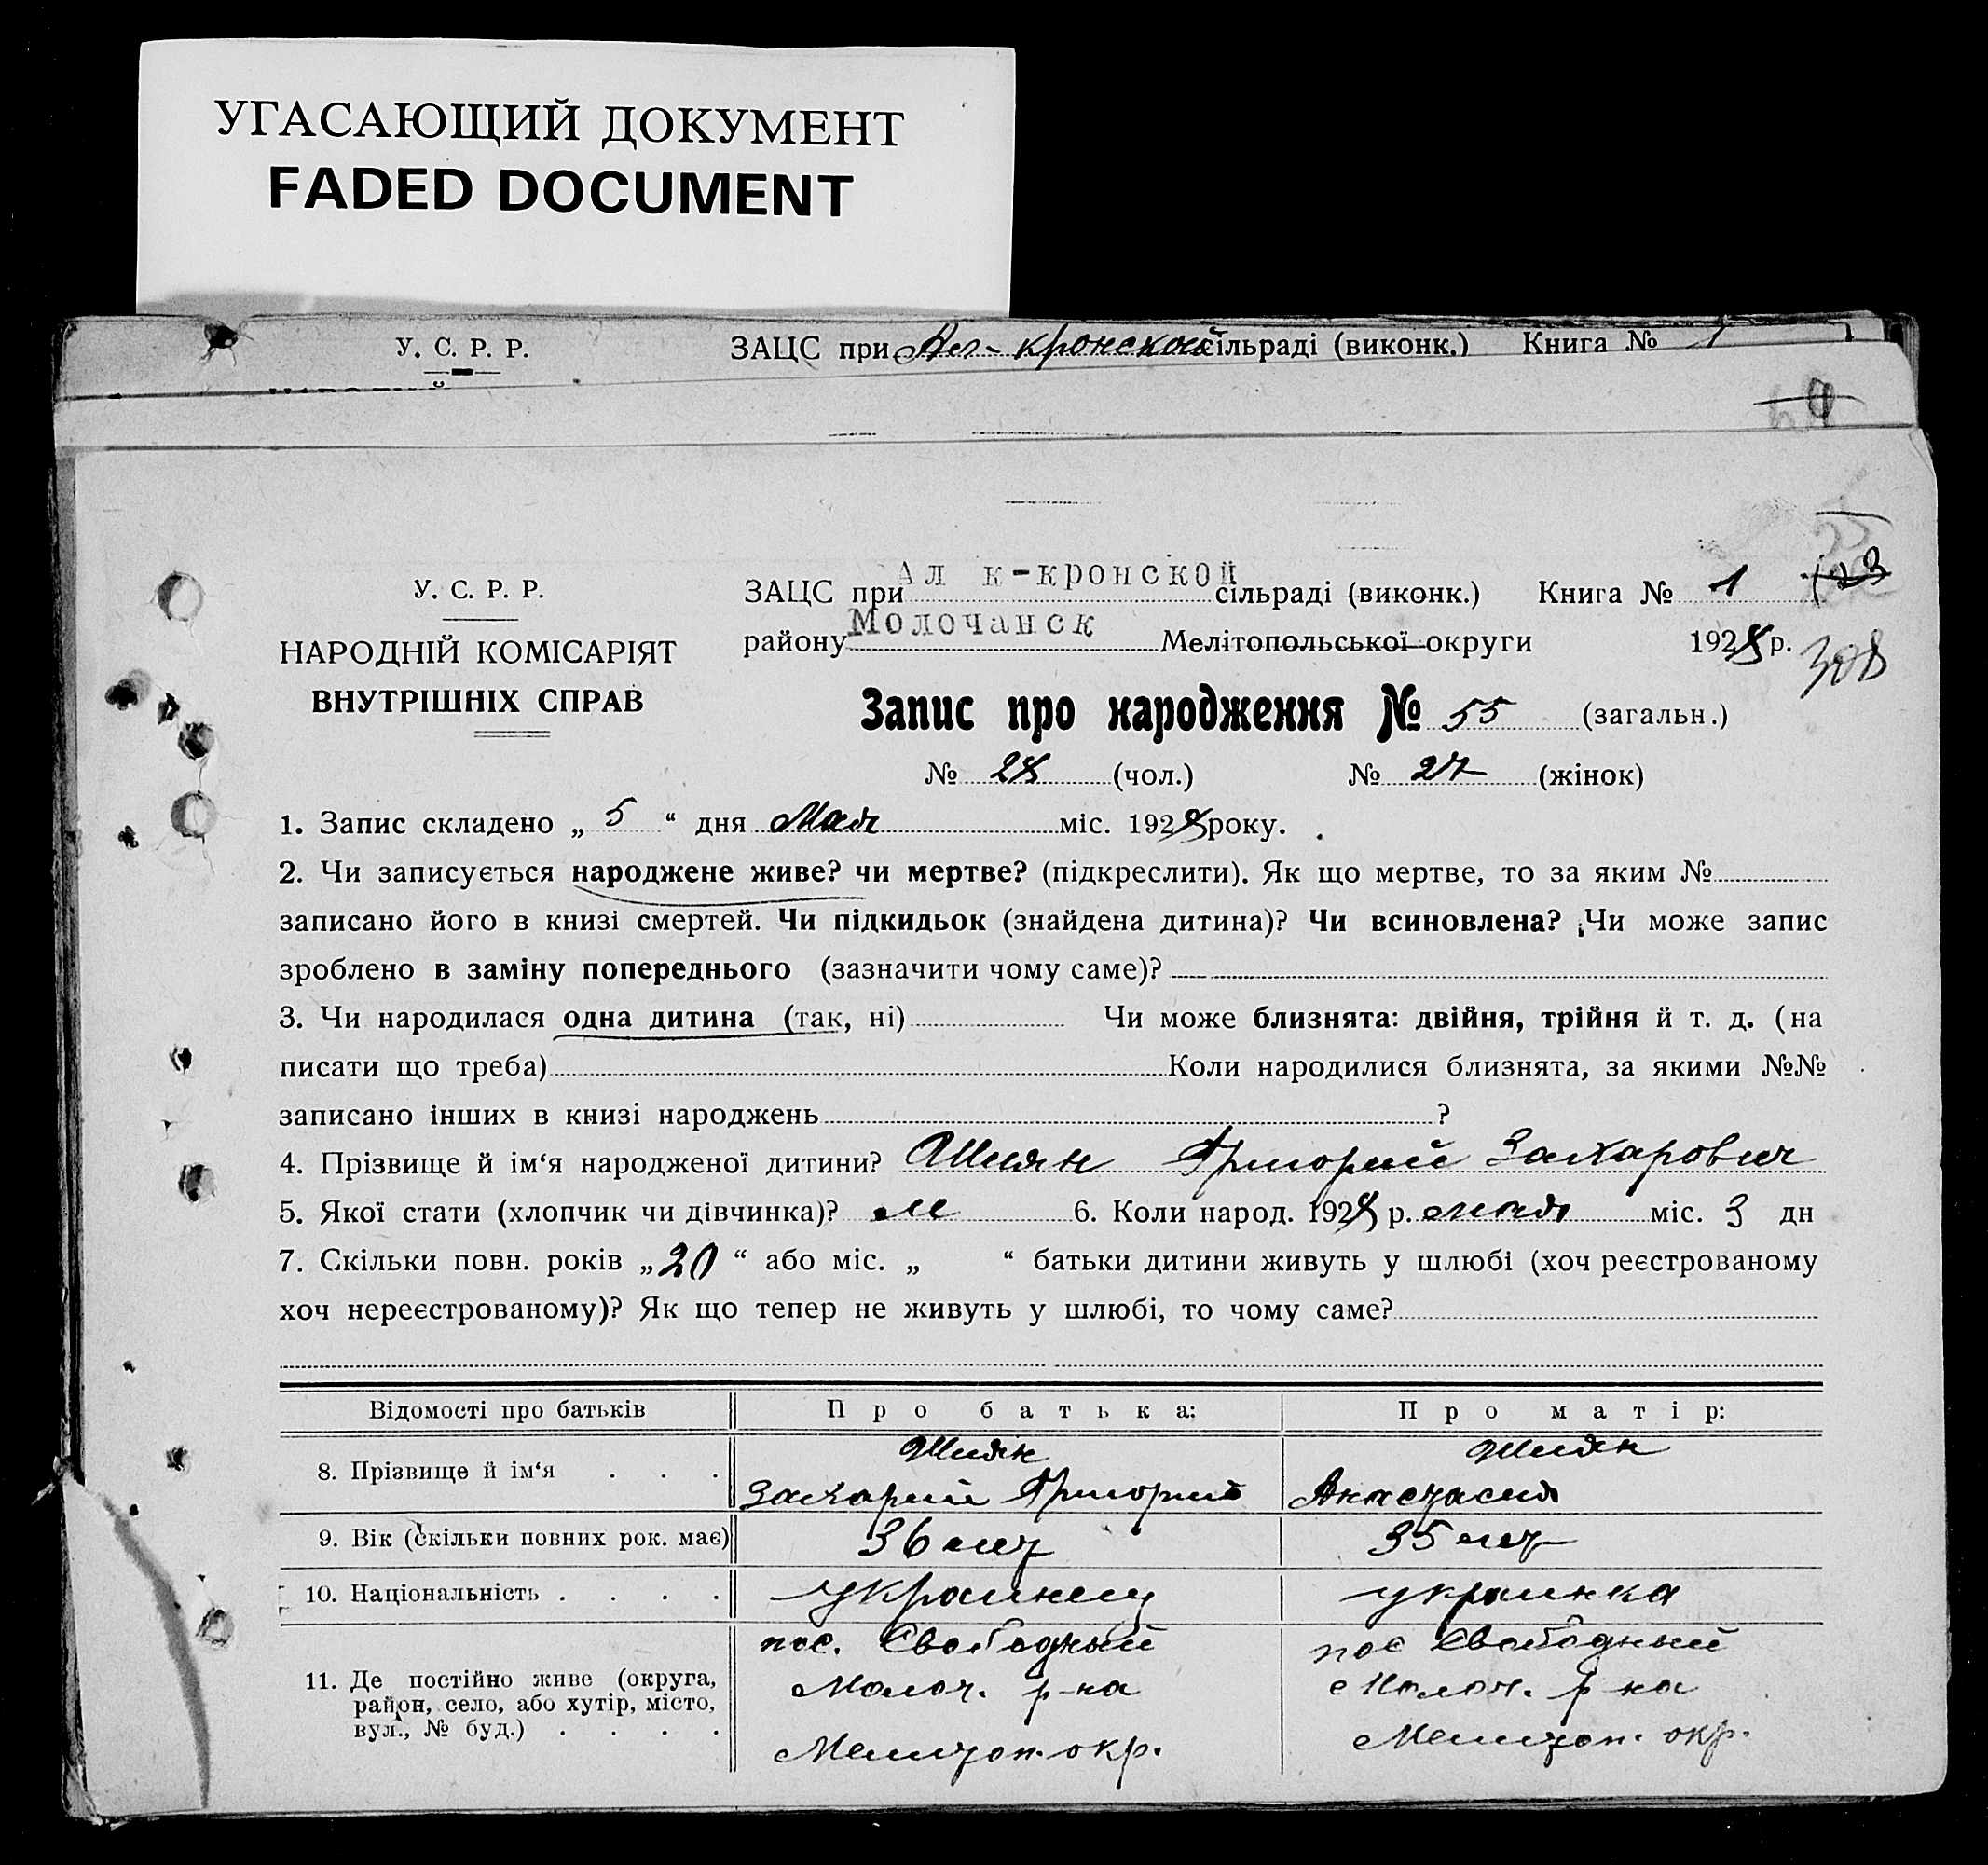 УГАСАЮЩИЙ ДОКУМЕНТ
FADED DOCUMENT
У. С. Р. Р. ЗАЦС при Ал-кронской сільраді (виконк.) Книга № 1
У. С. Р. Р. ЗАЦС при Ал к-кронской сільраді (виконк.) Книга № 1
НАРОДНІЙ КОМІСАРІЯТ району Молочанск Мелітопольської округи 1928 р. 308
ВНУТРІШНІХ СПРАВ
Запис про народження № 55 (загальн.)
№ 28 (чол.) № 27 (жінок)
1. Запис складено „ 5 “ дня Мая міс. 1928 року.
2. Чи записується народжене живе? чи мертве? (підкреслити). Як що мертве, то за яким №
записано його в книзі смертей. Чи підкидьок (знайдена дитина)? Чи всиновлена? Чи може запис
зроблено в заміну попереднього (зазначити чому саме)?
3. Чи народилася одна дитина (так, ні) Чи може близнята: двійня, трійня й т. д. (на
писати що треба) Коли народилися близнята, за якими №№
записано інших в книзі народжень ?
4. Прізвище й ім‘я народженої дитини? Шиян Григорий Захарович
5. Якої стати (хлопчик чи дівчинка)? м 6. Коли народ. 1928 р. мая міс. 3 дн
7. Скільки повн. років „20“ або міс. „ “ батьки дитини живуть у шлюбі (хоч реєстрованому
хоч нереєстрованому)? Як що тепер не живуть у шлюбі, то чому саме?
Відомості про батьків Про батька: Про матір:
Шиян Шиян
8. Прізвище й ім‘я . . . Захарий Григорий Анастасия
9. Вік (скільки повних рок. має) 36 лет 35 лет
10. Національність . . . . украинец украинка
пос. Свободный пос Свободный
11. Де постійно живе (округа, Молоч. р-на Молоч. р на
район, село, або хутір, місто,
вул., № буд.) . . . . Мелитоп. окр. Мелитоп. окр.